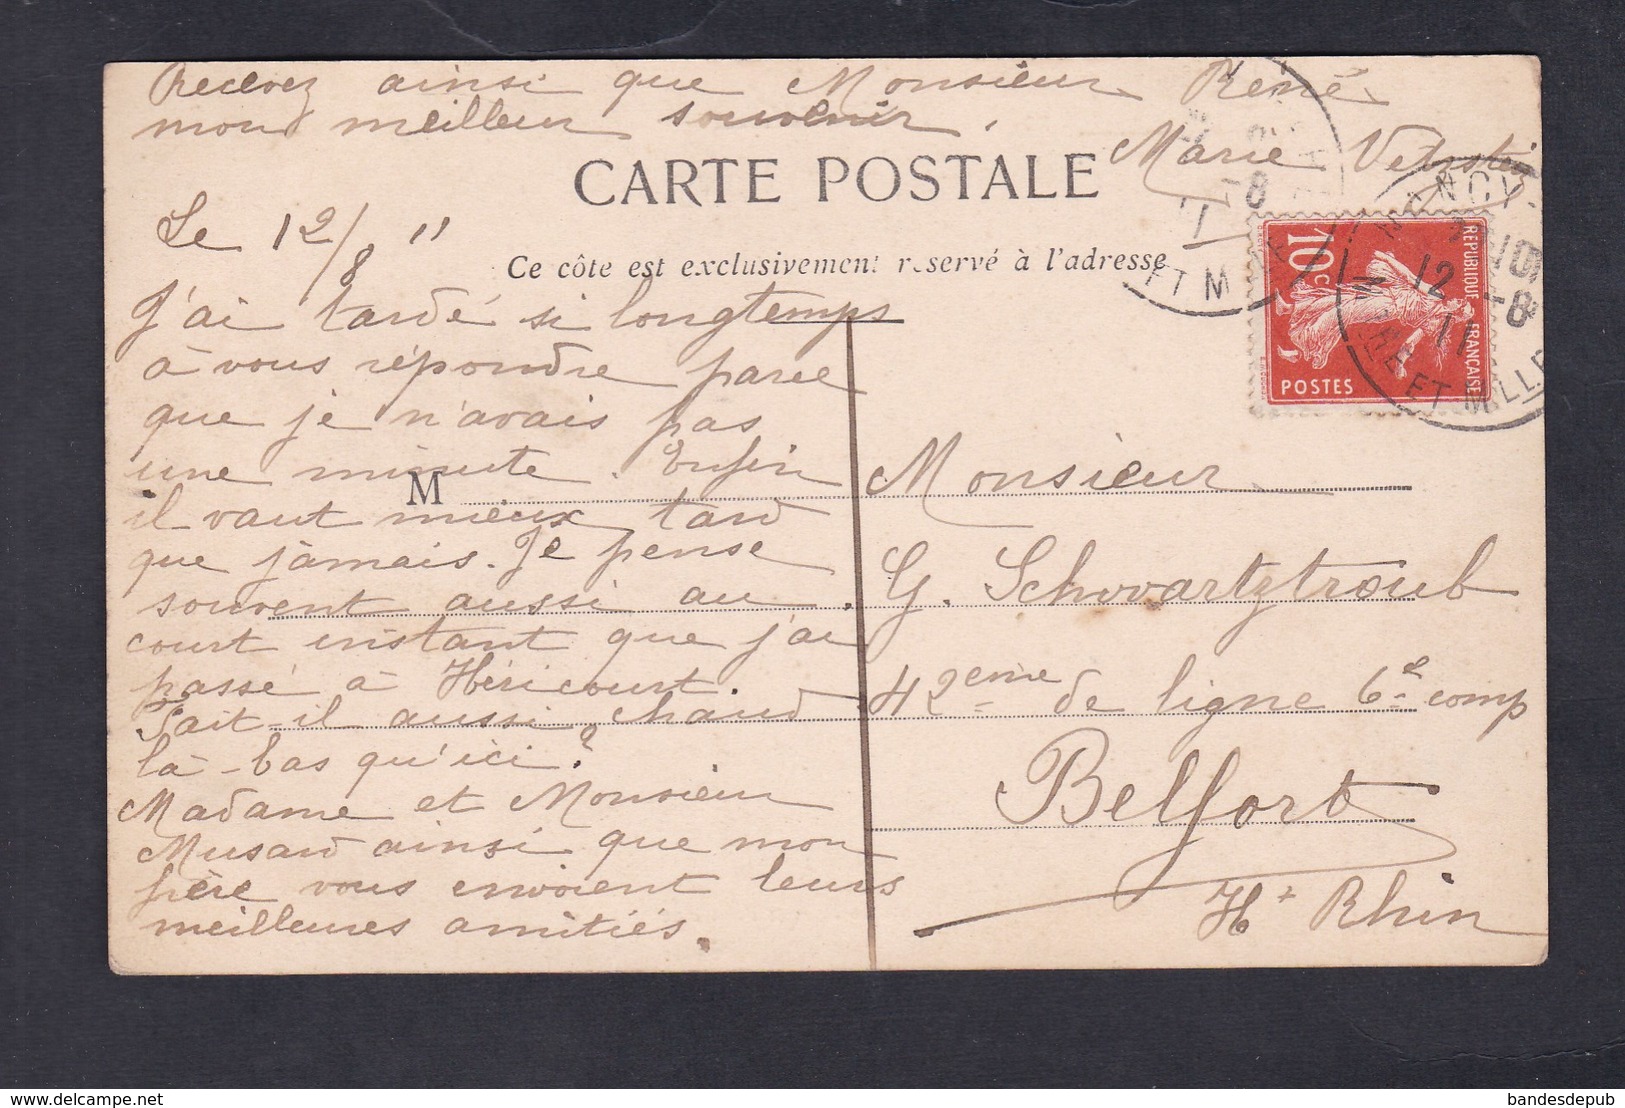 Recevez ainsi que Monsieur René
mon meilleur souvenir.
Marie
CARTE POSTALE
Le 12/8 11
Ce côté est exclusivement réservé à l'adresse
J'ai tardé si longtemps
à vous répondre parce
que je n'avais pas
une minute. Enfin
il vaut mieux tard
que jamais. Je pense
souvent aussi au
court instant que j'ai
passé à Héricourt.
Fait-il aussi chaud
là-bas qu'ici?
Madame et Monsieur
Musard ainsi que mon
père vous envoient leurs
meilleures amitiés.
M
Monsieur
G. Schwartztroub
42eme de ligne 6e comp
Belfort
Ht Rhin
REPUBLIQUE FRANÇAISE
10c
POSTES
NANCY
12 -8
11
MRHE ET MLLE
-8
11
ET M
delcampe.net
bandesdepub